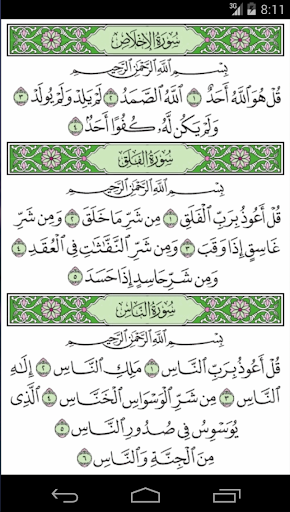 3G 8:11
سُورَةُ الإِخْلَاصِ
بِسْمِ اللَّهِ الرَّحْمَٰنِ الرَّحِيمِ
قُلْ هُوَ اللَّهُ أَحَدٌ ١ اللَّهُ الصَّمَدُ ٢ لَمْ يَلِدْ وَلَمْ يُولَدْ ٣
وَلَمْ يَكُن لَّهُ كُفُوًا أَحَدٌ ٤
سُورَةُ الْفَلَقِ
بِسْمِ اللَّهِ الرَّحْمَٰنِ الرَّحِيمِ
قُلْ أَعُوذُ بِرَبِّ الْفَلَقِ ١ مِن شَرِّ مَا خَلَقَ ٢ وَمِن شَرِّ
غَاسِقٍ إِذَا وَقَبَ ٣ وَمِن شَرِّ النَّفَّٰثَٰتِ فِي الْعُقَدِ ٤
وَمِن شَرِّ حَاسِدٍ إِذَا حَسَدَ ٥
سُورَةُ النَّاسِ
بِسْمِ اللَّهِ الرَّحْمَٰنِ الرَّحِيمِ
قُلْ أَعُوذُ بِرَبِّ النَّاسِ ١ مَلِكِ النَّاسِ ٢ إِلَٰهِ
النَّاسِ ٣ مِن شَرِّ الْوَسْوَاسِ الْخَنَّاسِ ٤ الَّذِي
يُوَسْوِسُ فِي صُدُورِ النَّاسِ ٥
مِنَ الْجِنَّةِ وَالنَّاسِ ٦